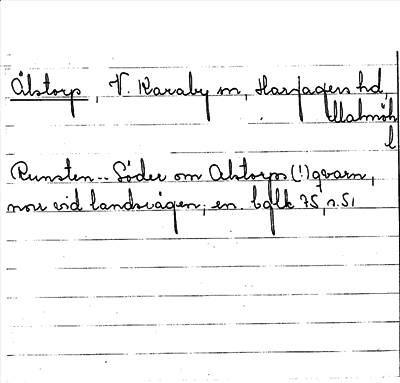 Ålstorp, V. Karaby sn, Harjagers hd,
Malmöh
l
Runsten.. Söder om Alstorps (!) qvarn,
norr vid landsvägen; en. bglk 75, n. 51